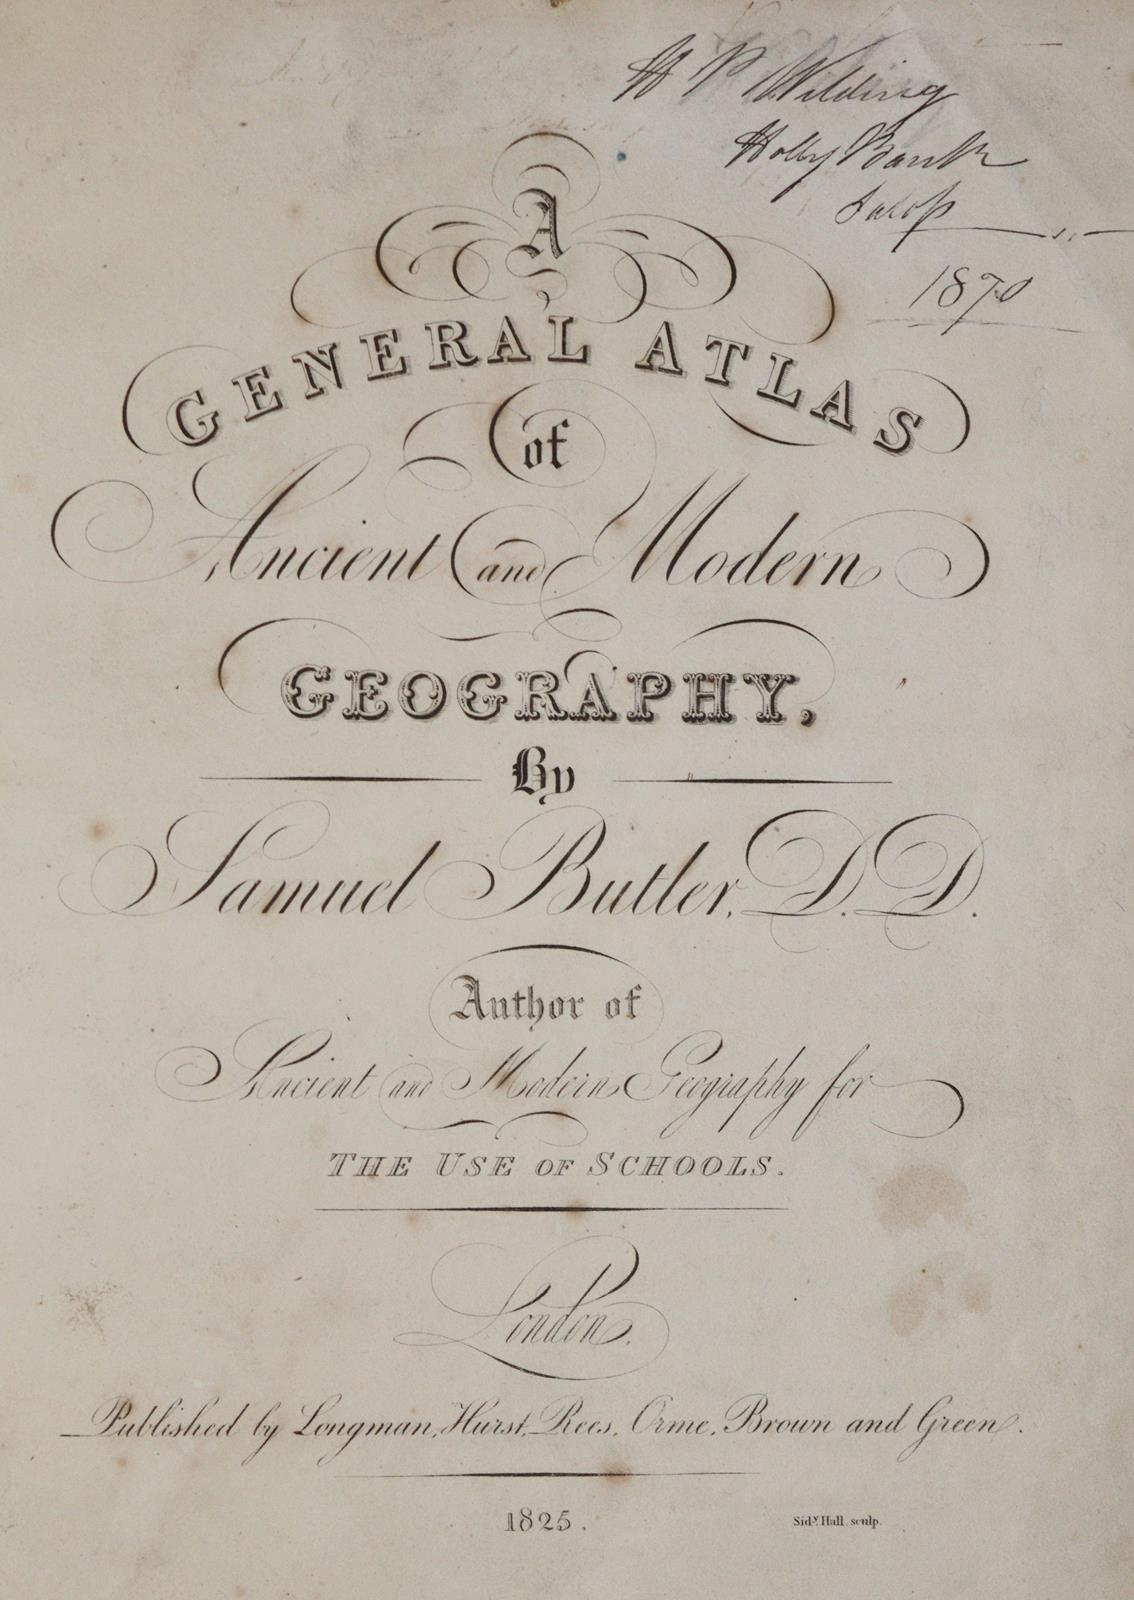 H P Wilding
Holly Bank
Salop
1870
A
GENERAL ATLAS
of
Ancient and Modern
GEOGRAPHY,
By
Samuel Butler, D.D.
Author of
Ancient and Modern Geography for
THE USE OF SCHOOLS.
London.
Published by Longman, Hurst, Rees, Orme, Brown and Green.
1825.
Sidy. Hall. sculp.